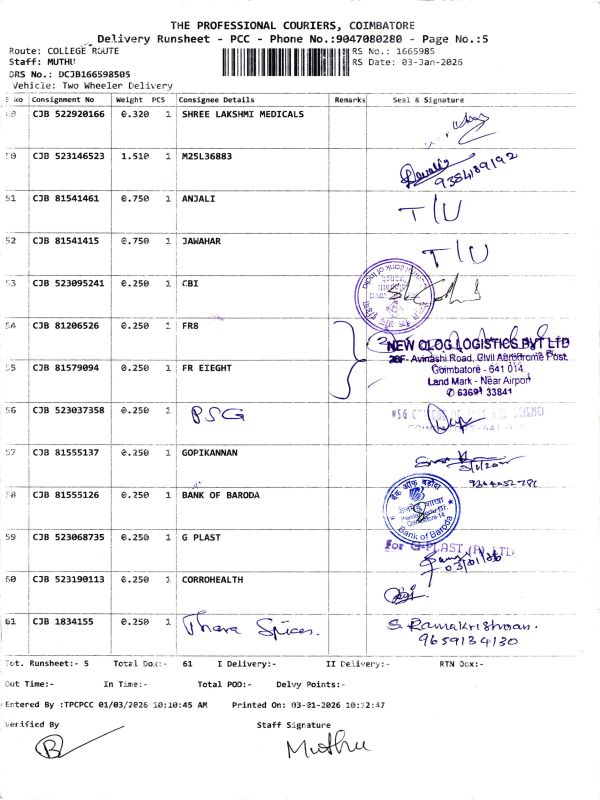 THE PROFESSIONAL COURIERS, COIMBATORE
Delivery Runsheet - PCC - Phone No.:9047080280 - Page No.:5
Route: COLLEGE ROUTE RS No.: 1665985
Staff: MUTHU RS Date: 03-Jan-2026
DRS No.: DCJB166598505
Vehicle: Two Wheeler Delivery
No Consignment No Weight PCS Consignee Details Remarks Seal & Signature
49 CJB 522920166 0.320 1 SHREE LAKSHMI MEDICALS
50 CJB 523146523 1.510 1 M25L36883
9384189192
51 CJB 81541461 0.750 1 ANJALI T/U
52 CJB 81541415 0.750 1 JAWAHAR T/U
53 CJB 523095241 0.250 1 CBI
54 CJB 81206526 0.250 1 FR8
NEW OLOG LOGISTICS PVT LTD
28F- Avinashi Road, Civil Aerodrome Post,
55 CJB 81579094 0.250 1 FR EIEGHT Coimbatore - 641 014
Land Mark - Near Airport
✆ 63691 33841
56 CJB 523037358 0.250 1 PSG
57 CJB 81555137 0.250 1 GOPIKANNAN
58 CJB 81555126 0.250 1 BANK OF BARODA
बैंक ऑफ़ बड़ौदा
Coimbatore-14
Bank of Baroda
59 CJB 523068735 0.250 1 G PLAST
for G-PLAST (P) LTD
03/01/26
60 CJB 523190113 0.250 1 CORROHEALTH
61 CJB 1834155 0.250 1 Thara Spices. S. Ramakrishnan.
9659134130
Tot. Runsheet:- 5 Total Dox:- 61 I Delivery:- II Delivery:- RTN Dox:-
Out Time:- In Time:- Total POD:- Delvy Points:-
Entered By :TPCPCC 01/03/2026 10:10:45 AM Printed On: 03-01-2026 10:32:47
Verified By Staff Signature
Muthu